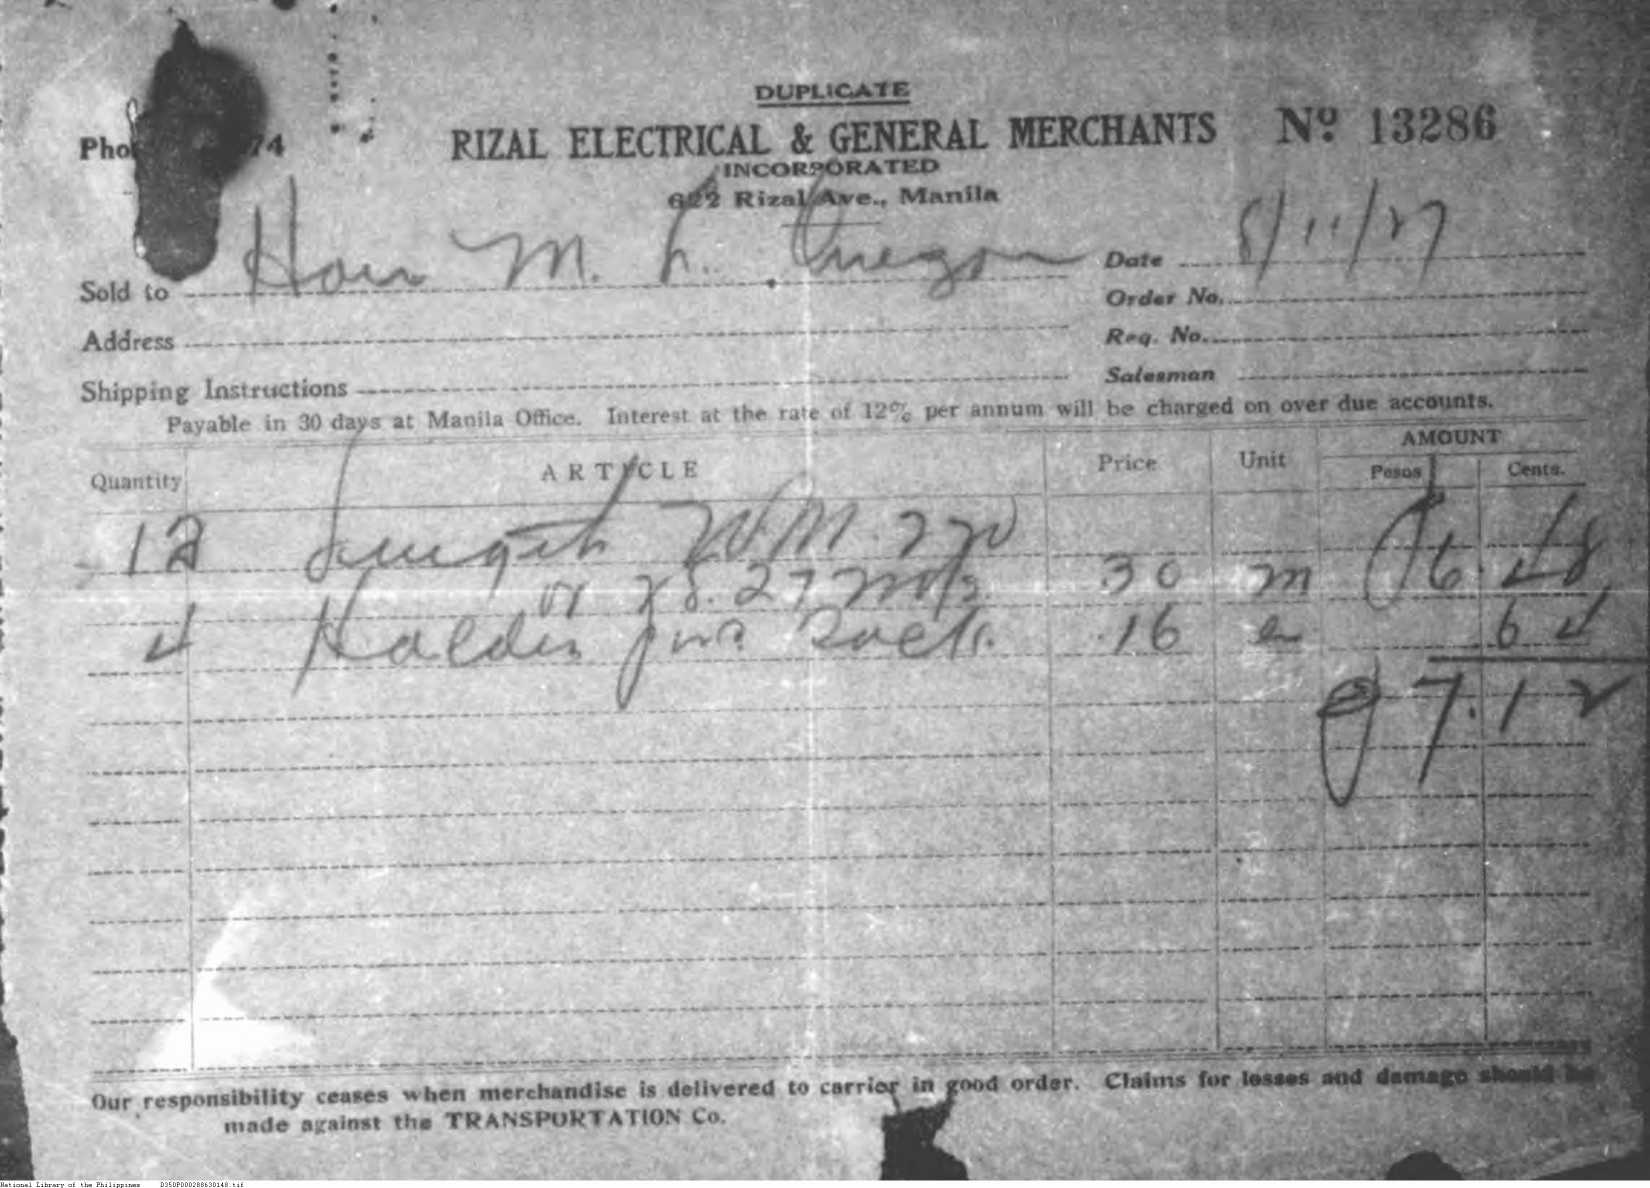 DUPLICATE
74 RIZAL ELECTRICAL & GENERAL MERCHANTS Nº 13286
INCORPORATED
622 Rizal Ave., Manila
Sold to Hon M. L. Quezon Date 8/11/27
Order No.
Address Req. No.
Shipping Instructions Salesman
Payable in 30 days at Manila Office. Interest at the rate of 12% per annum will be charged on over due accounts.
Quantity ARTICLE Price Unit AMOUNT
Pesos Cents.
12 W.M. 270 6.48
27 30 m
4 16 64
7.12
Our responsibility ceases when merchandise is delivered to carrier in good order. Claims for losses and damage should be
made against the TRANSPORTATION Co.
National Library of the Philippines